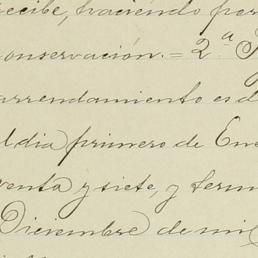 recibe, haciendo por
conservación. = 2.ª
arrendamiento es d
l dia primero de Ene
venta y siete, y term
Diciembre de mil